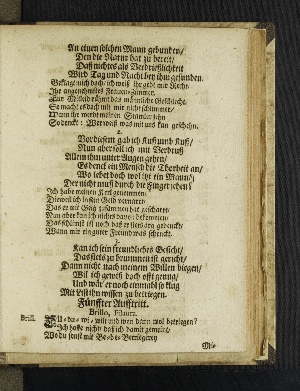 An einen solchen Mann gebunden/
Den die Natur hat zu bereit/
Daß nichts als Verdrießlichkeit
Wird Tag und Nacht bey ihm gefunden.
Beklagt mich doch/ ich weiß ihr gebt mir Recht/
Ihr angenehmstes Frauen-Zimmer.
Zur Mißgunst das männliche Geschlecht/
So macht es doch mit mir nicht schlimmer/
Wann ihr werdt meinen Stand
So denckt: Wer weiß was mit uns kan geschehn.
2.
Vor diesem gab ich Kuß umb Kuß/
Nun aber soll ich mit Verdruß
Allein ihm unter Augen gehen/
Es denck ein Mensch die Thorheit an/
Wo lebet doch wol ein Mann/
Der nicht muß durch die Finger sehen?
Ich habe meinen Kerl genommen/
Dieweil ich Geld vernam/
Das er mit zusammen hat gescharrt/
Nun aber kan ich nichts bekommen/
Das schlimst ist noch daß er stets arg gedenckt/
Wann mir ein guter Freund was schenckt.
3.
Kan ich sein freundliches Gesicht/
Das stets zu brummen ist gericht/
Dann nicht nach meinem Willen biegen/
Will ich gewiß doch offt genug/
Und wär er noch einmahl so klug
Mit List ihn wissen zu betriegen.
Fünffter Aufftritt.
Brillo, Filaurt.
Brill.
Ich hoffe nicht daß ich damit gemeint/
Wo du sonst mit Be-de-Betriegerey